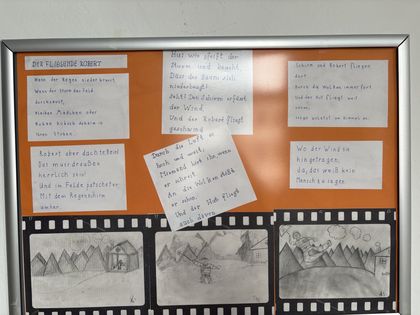 DER FLIEGENDE ROBERT
Wenn der Regen niederbraust
Wenn der Sturm das Feld
durchsaust,
bleiben Mädchen oder
Buben hübsch daheim in
ihren Stuben.
Robert aber dachte: Nein!
Das muß draußen
herrlich sein!
Und im Felde patschet er
Mit dem Regenschirm
umher.
Hui wie pfeift der
Sturm und keucht,
Dass der Baum sich
niederbeugt!
Seht! Den Schirm erfasst
der Wind,
Und der Robert fliegt
geschwind
Durch die Luft so
hoch und weit;
Niemand hört ihn, wenn
er schreit.
An die Wolken stößt
er schon,
Und der Hut fliegt
auch davon.
Schirm und Robert fliegen
dort
Durch die Wolken immer fort
Und der Hut fliegt weit
voran,
Stößt zuletzt am Himmel an.
Wo der Wind sie
hingetragen,
Ja, das weiß kein
Mensch zu sagen.